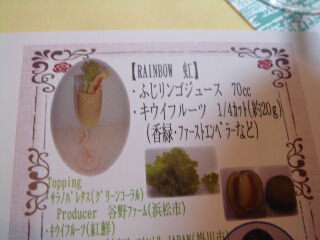 【RAINBOW 虹】
・ふじリンゴジュース 70cc
・キウイフルーツ 1/4カット(約20g)
(香緑・ファーストエンペラーなど)
Topping
サラノバレタス(グリーンコーラル)
Producer 谷野ファーム(浜松市)
・キウイフルーツ(紅鮮)
JAPAN(掛川市)